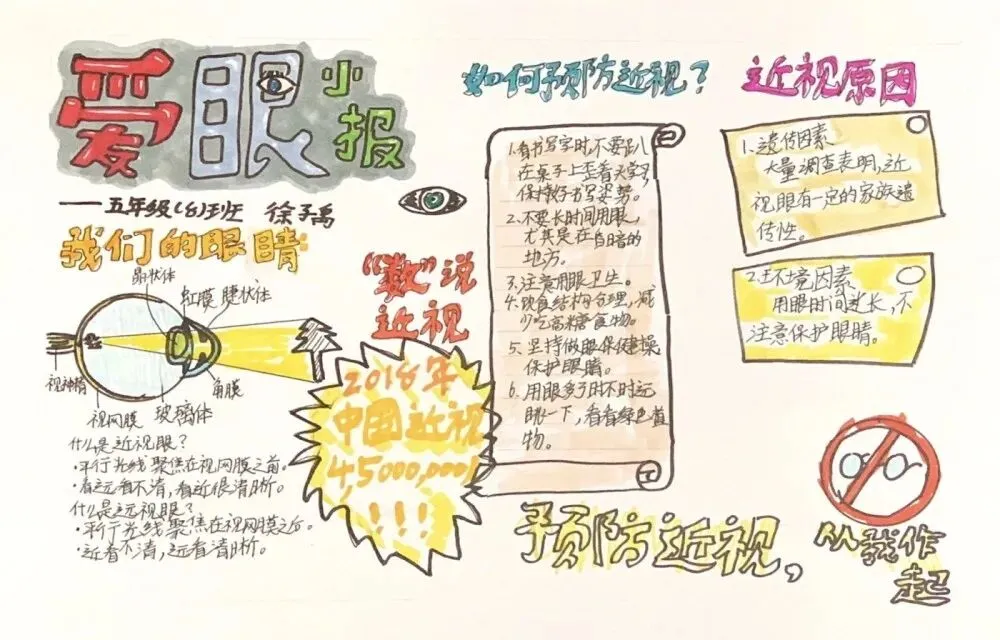 爱眼小报
——五年级(8)班 徐子禹
我们的眼睛:
晶状体
虹膜 睫状体
视神精
角膜
视网膜
玻璃体
什么是近视眼?
·平行光线聚焦在视网膜之前。
·看远看不清,看近很清晰。
什么是远视眼?
·平行光线聚焦在视网膜之后。
·近看不清,远看清晰。
“数”说
近视
2018年
中国近视
4,5000,000
!!!
如何预防近视?
1.看书写字时不要趴
在桌子上歪着头学习,
保持好书写姿势。
2.不要长时间用眼,
尤其是在昏暗的
地方。
3.注意用眼卫生。
4.饮食结构合理,减
少吃高糖食物。
5.坚持做眼保健操
保护眼睛。
6.用眼多了时不时远
眺一下,看看绿色植
物。
近视原因
1.遗传因素
大量调查表明,近
视眼有一定的家族遗
传性。
2.环境因素
用眼时间过长,不
注意保护眼睛。
预防近视,
从我作
起